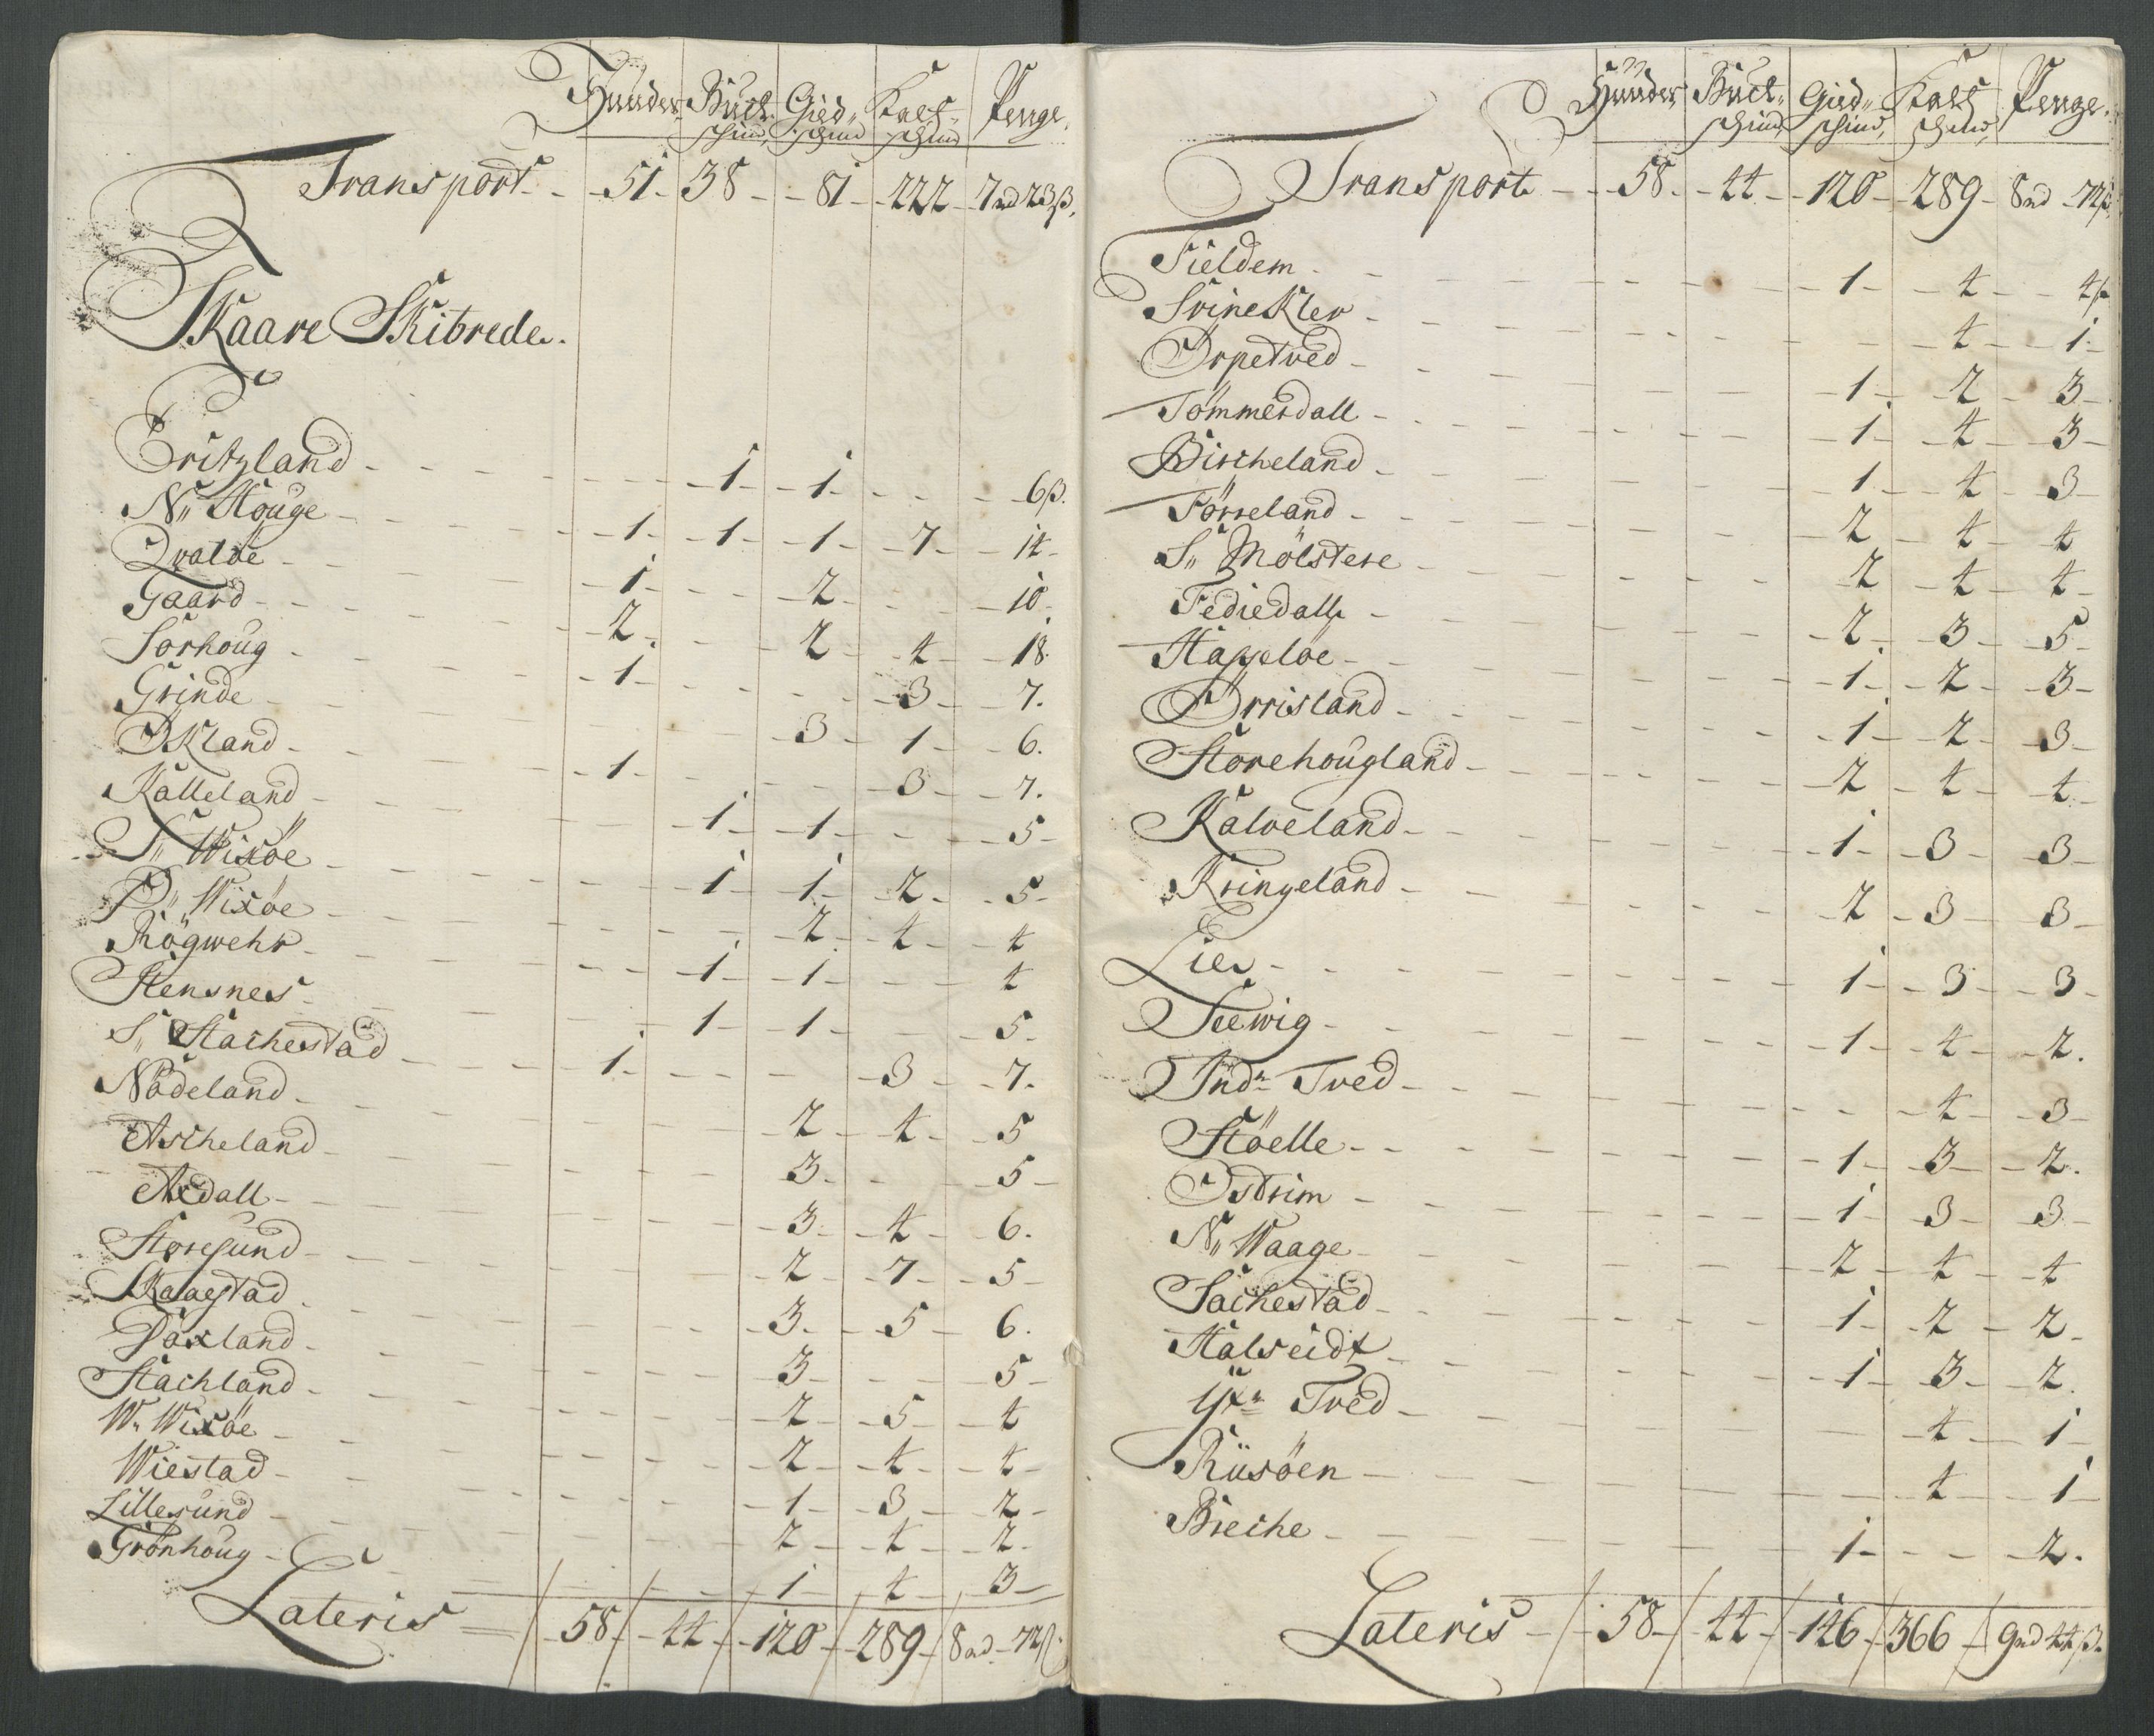 Huuder Buck- Gied- Kalf- Penge.
schind, schind schind
Transport - - 51 - 38 - - 81 - - 222 - 7 rd 23 β.
Skaare Skibrede.
Fritzland - - - 1 - - 1 - - - - 6 β.
N: Houge - - 1 - - 1 - - 1 - - 7 - - 14 -
Qvalöe - - 1 - - - 2 - - - 10 -
Gaard - - 2 - - - 2 - - 4 - - 18.
Sörhoug - - 1 - - - - 3 - - 7.
Grinde - - - 3 - - 1 - - 6.
Økland - - 1 - - - - 3 - - 7.
Kalleland - - - 1 - - 1 - - - 5 -
S: Wixöe - - - 1 - - 1 - - 2 - - 5 -
P: Wixöe - - - 2 - - 4 - - 4
Rögwehr - - - 1 - - 1 - - - 4
Stensnes - - - 1 - - 1 - - 5 -
S: Stachestad - - 1 - - - - 3 - - 7.
Nådeland - - - 2 - - 4 - - 5
Ascheland - - - 3 - - - 5 -
Aedall - - - 3 - - 4 - - 6.
Storesund - - - 2 - - 7 - - 5 -
Skaaestad - - - 3 - - 5 - - 6.
Döxland - - - 3 - - - 5 -
Stachland - - - 2 - - 5 - - 4
W: Wixöe - - - 2 - - 4 - - 4 -
Wiestad - - - 1 - - 3 - - 2 -
Lillesund - - - 2 - - 4 - - 2 -
Grönhoug - - - 1 - - 4 - - 3 -
Lateris = 58 - 44 - 120 - 289 - 8 rd - 72 β.
Huuder Buck- Gied- Kalf Penge.
schind, schind, schind,
Transport - - 58 - 44 - 120 - 289 - 8 rd - 72 β
Fieldem - - - 1 - - 4 - - 4 β
Svinekler - - - 4 - - 1 -
Ørpetved - - - 1 - - 2 - - 3 -
Tömmerdall - - - 1 - - 4 - - 3 -
Bircheland - - - 1 - - 4 - - 3 -
Förreland - - - 2 - - 4 - - 4
S: Mölstere - - - 2 - - 4 - - 4 -
Fediedall - - - 2 - - 3 - - 5 -
Hasseløe - - - 1 - - 2 - - 3 -
Ørrisland - - - 1 - - 2 - - 3 -
Storehougland - - - 2 - - 4 - - 4 -
Kalveland - - - 1 - - 3 - - 3 -
Kringeland - - - 2 - - 3 - - 3 -
Lier - - - 1 - - 3 - - 3 -
Seewig - - - 1 - - 4 - - 2.
Indr Tved - - - 4 - - 3 -
Stöelle - - - 1 - - 3 - - 2.
Østrim - - - 1 - - 3 - - 3 -
N: Waage - - - 2 - - 4 - - 4
Sachestad - - - 1 - - 2 - - 2 -
Halseidt - - - 1 - - 3 - - 2.
Ytr Tved - - - 4 - - 1 -
Rüsöen - - - 4 - - 1 -
Breche - - - 1 - - - 2.
Lateris - 58 - 44 - 146 - 366 - 9 rd 44 β.